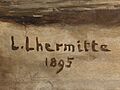 L.Lhermitte
1895